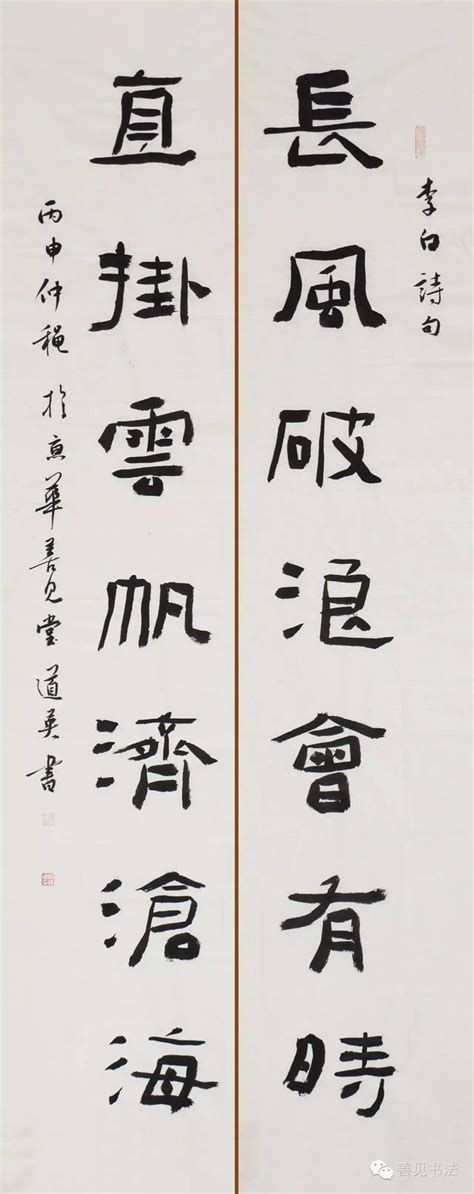 李白詩句
長風破浪會有時
直掛雲帆濟滄海
丙申仲穐於京華善見堂道英書
善见书法